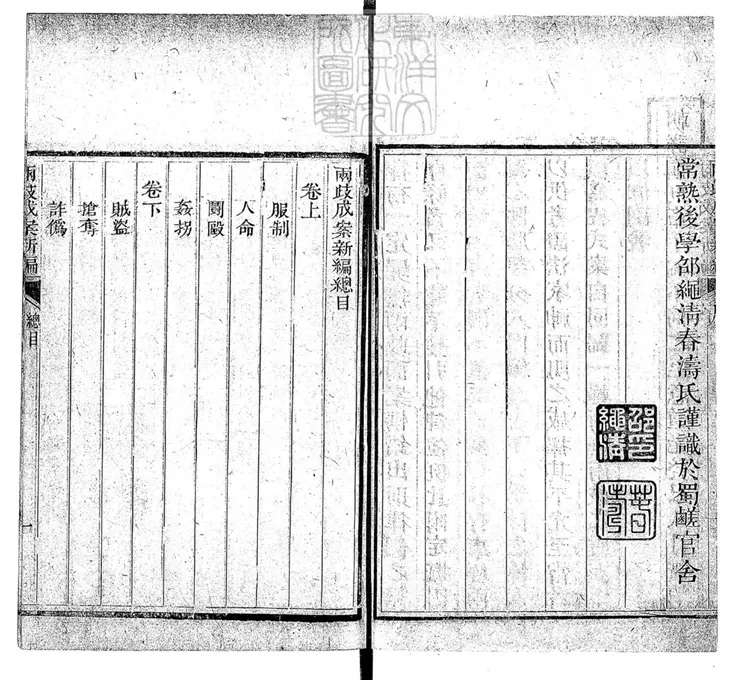 常熟後學邵繩清春濤氏謹識於蜀鹺官舍
邵印繩清
春濤
兩歧成案新編總目
卷上
服制
人命
鬭毆
姦拐
卷下
賊盜
搶奪
詐僞
兩歧成案新編
總目
一
東洋文化研究所圖書